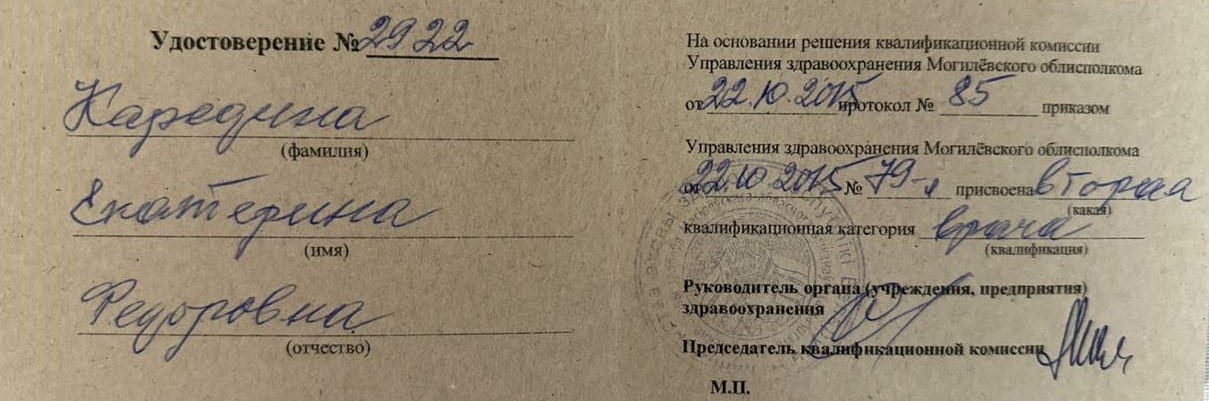 Удостоверение № 2922
Каредина
(фамилия)
Екатерина
(имя)
Федоровна
(отчество)
На основании решения квалификационной комиссии
Управления здравоохранения Могилёвского облисполкома
от 22.10.2015 протокол № 85 приказом
Управления здравоохранения Могилёвского облисполкома
от 22.10 2015 № 79-л присвоена вторая
(какая)
квалификационная категория врача
(квалификация)
Руководитель органа (учреждения, предприятия)
здравоохранения
Председатель квалификационной комиссии
М.П.